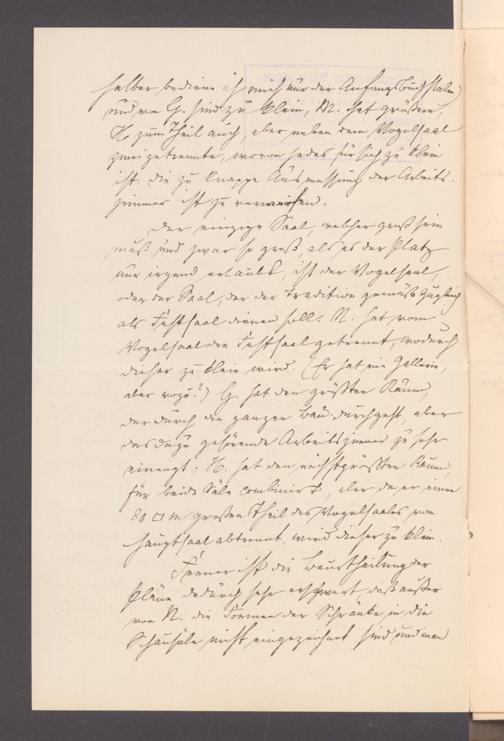 selber bediene ich mich nur der Anfangsbuchstaben)
und von G. sind zu klein, M. hat größere,
H. zum Theil auch, aber neben dem Vogelsaal
zwei getrennte, wovon jedes für sich zu klein
ist. Die zu knappe Ausmessung der Arbeits-
zimmer ist zu verwerfen.
Der einzige Saal, welcher groß sein
muß und zwar so groß, als es der Platz
nur irgend erlaubt, ist der Vogelsaal,
oder der Saal, der der Tradition gemäß zugleich
als Festsaal dienen soll. N. hat vom
Vogelsaal den Festsaal getrennt, wodurch
dieser zu klein wird. (Er hat eine Gallerie,
aber wozu?) G. hat den größten Raum,
der durch den ganzen Bau durchgeht, aber
das dazu gehörende Arbeitszimmer zu sehr
einengt; H. hat den nächstgrößten Raum
für beide Säle combinirt, aber da er einen
80 □ m großen Theil des Vogelsaales vom
Hauptsaal abtrennt, wird dieser zu klein.
Ferner ist die Beurtheilung der
Pläne dadurch sehr erschwert, daß außer
von N. die Formen der Schränke in die
Schausäle nicht eingezeichnet sind und man